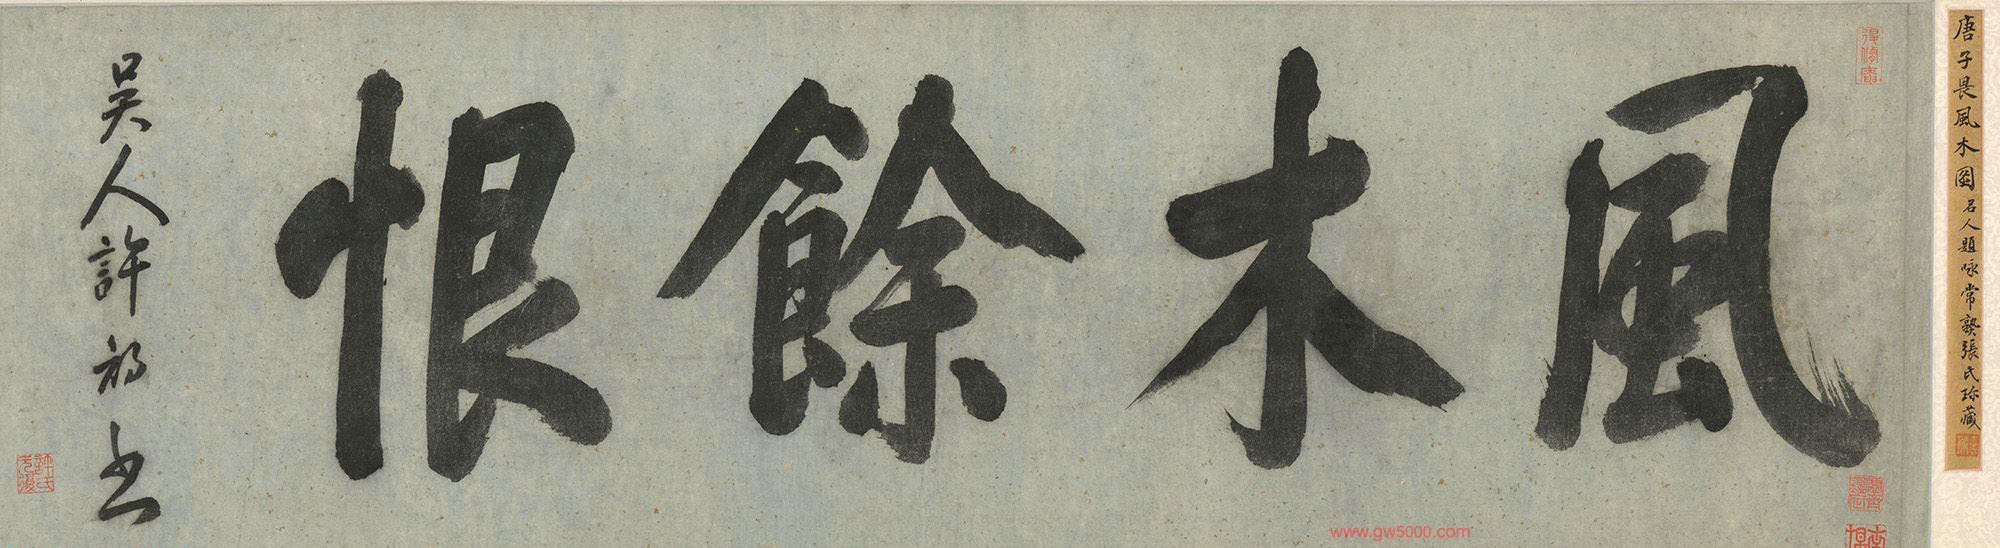 唐子畏風木圖 名人題咏 常熟張氏珍藏
風木餘恨
吳人許初書
許氏元復
www.gw5000.com